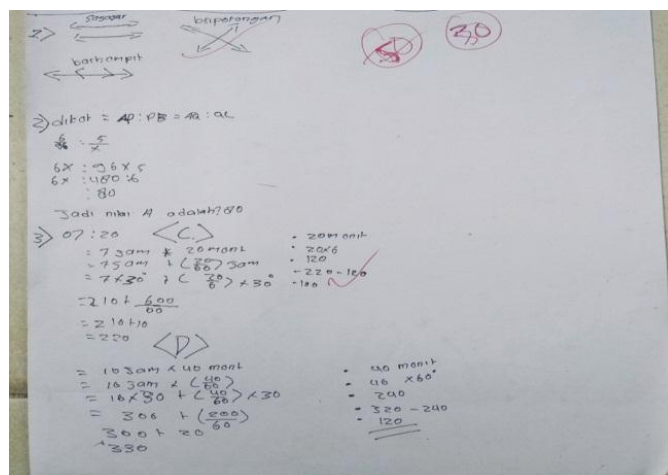 1) Sejajar berpotongan
berhimpit
30
2) diket = AP : PB = AQ : QC
6/96 : 5/x
6x : 96 x 5
6x : 480 : 6
: 80
Jadi nilai A adalah 80
3) 07 : 20 <C.>
= 7 jam + 20 monit
= 7 jam + (20/60) jam
= 7 x 30° + (20/6) x 30°
= 210 + 600/60
= 210 + 10
= 220
• 20 monit
• 20x6
• 120
- 220 - 120
- 100
<D>
= 10 jam x 40 monit
= 10 jam x (40/60)
= 10 x 30 + (40/60) x 30
= 300 + (200/60)
300 + 20
• 40 monit
• 40 x 60°
• 240
• 320 - 240
• 120